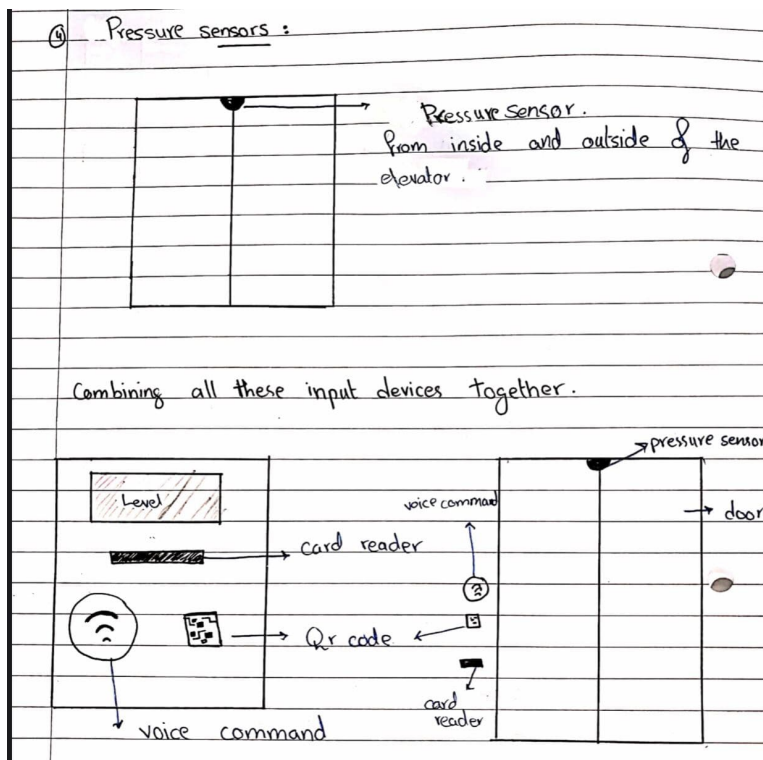 ④ Pressure sensors :
Pressure sensor.
From inside and outside of the
elevator.
Combining all these input devices together.
pressure sensor
Level
voice command
door
card reader
Qr code
card
reader
voice command